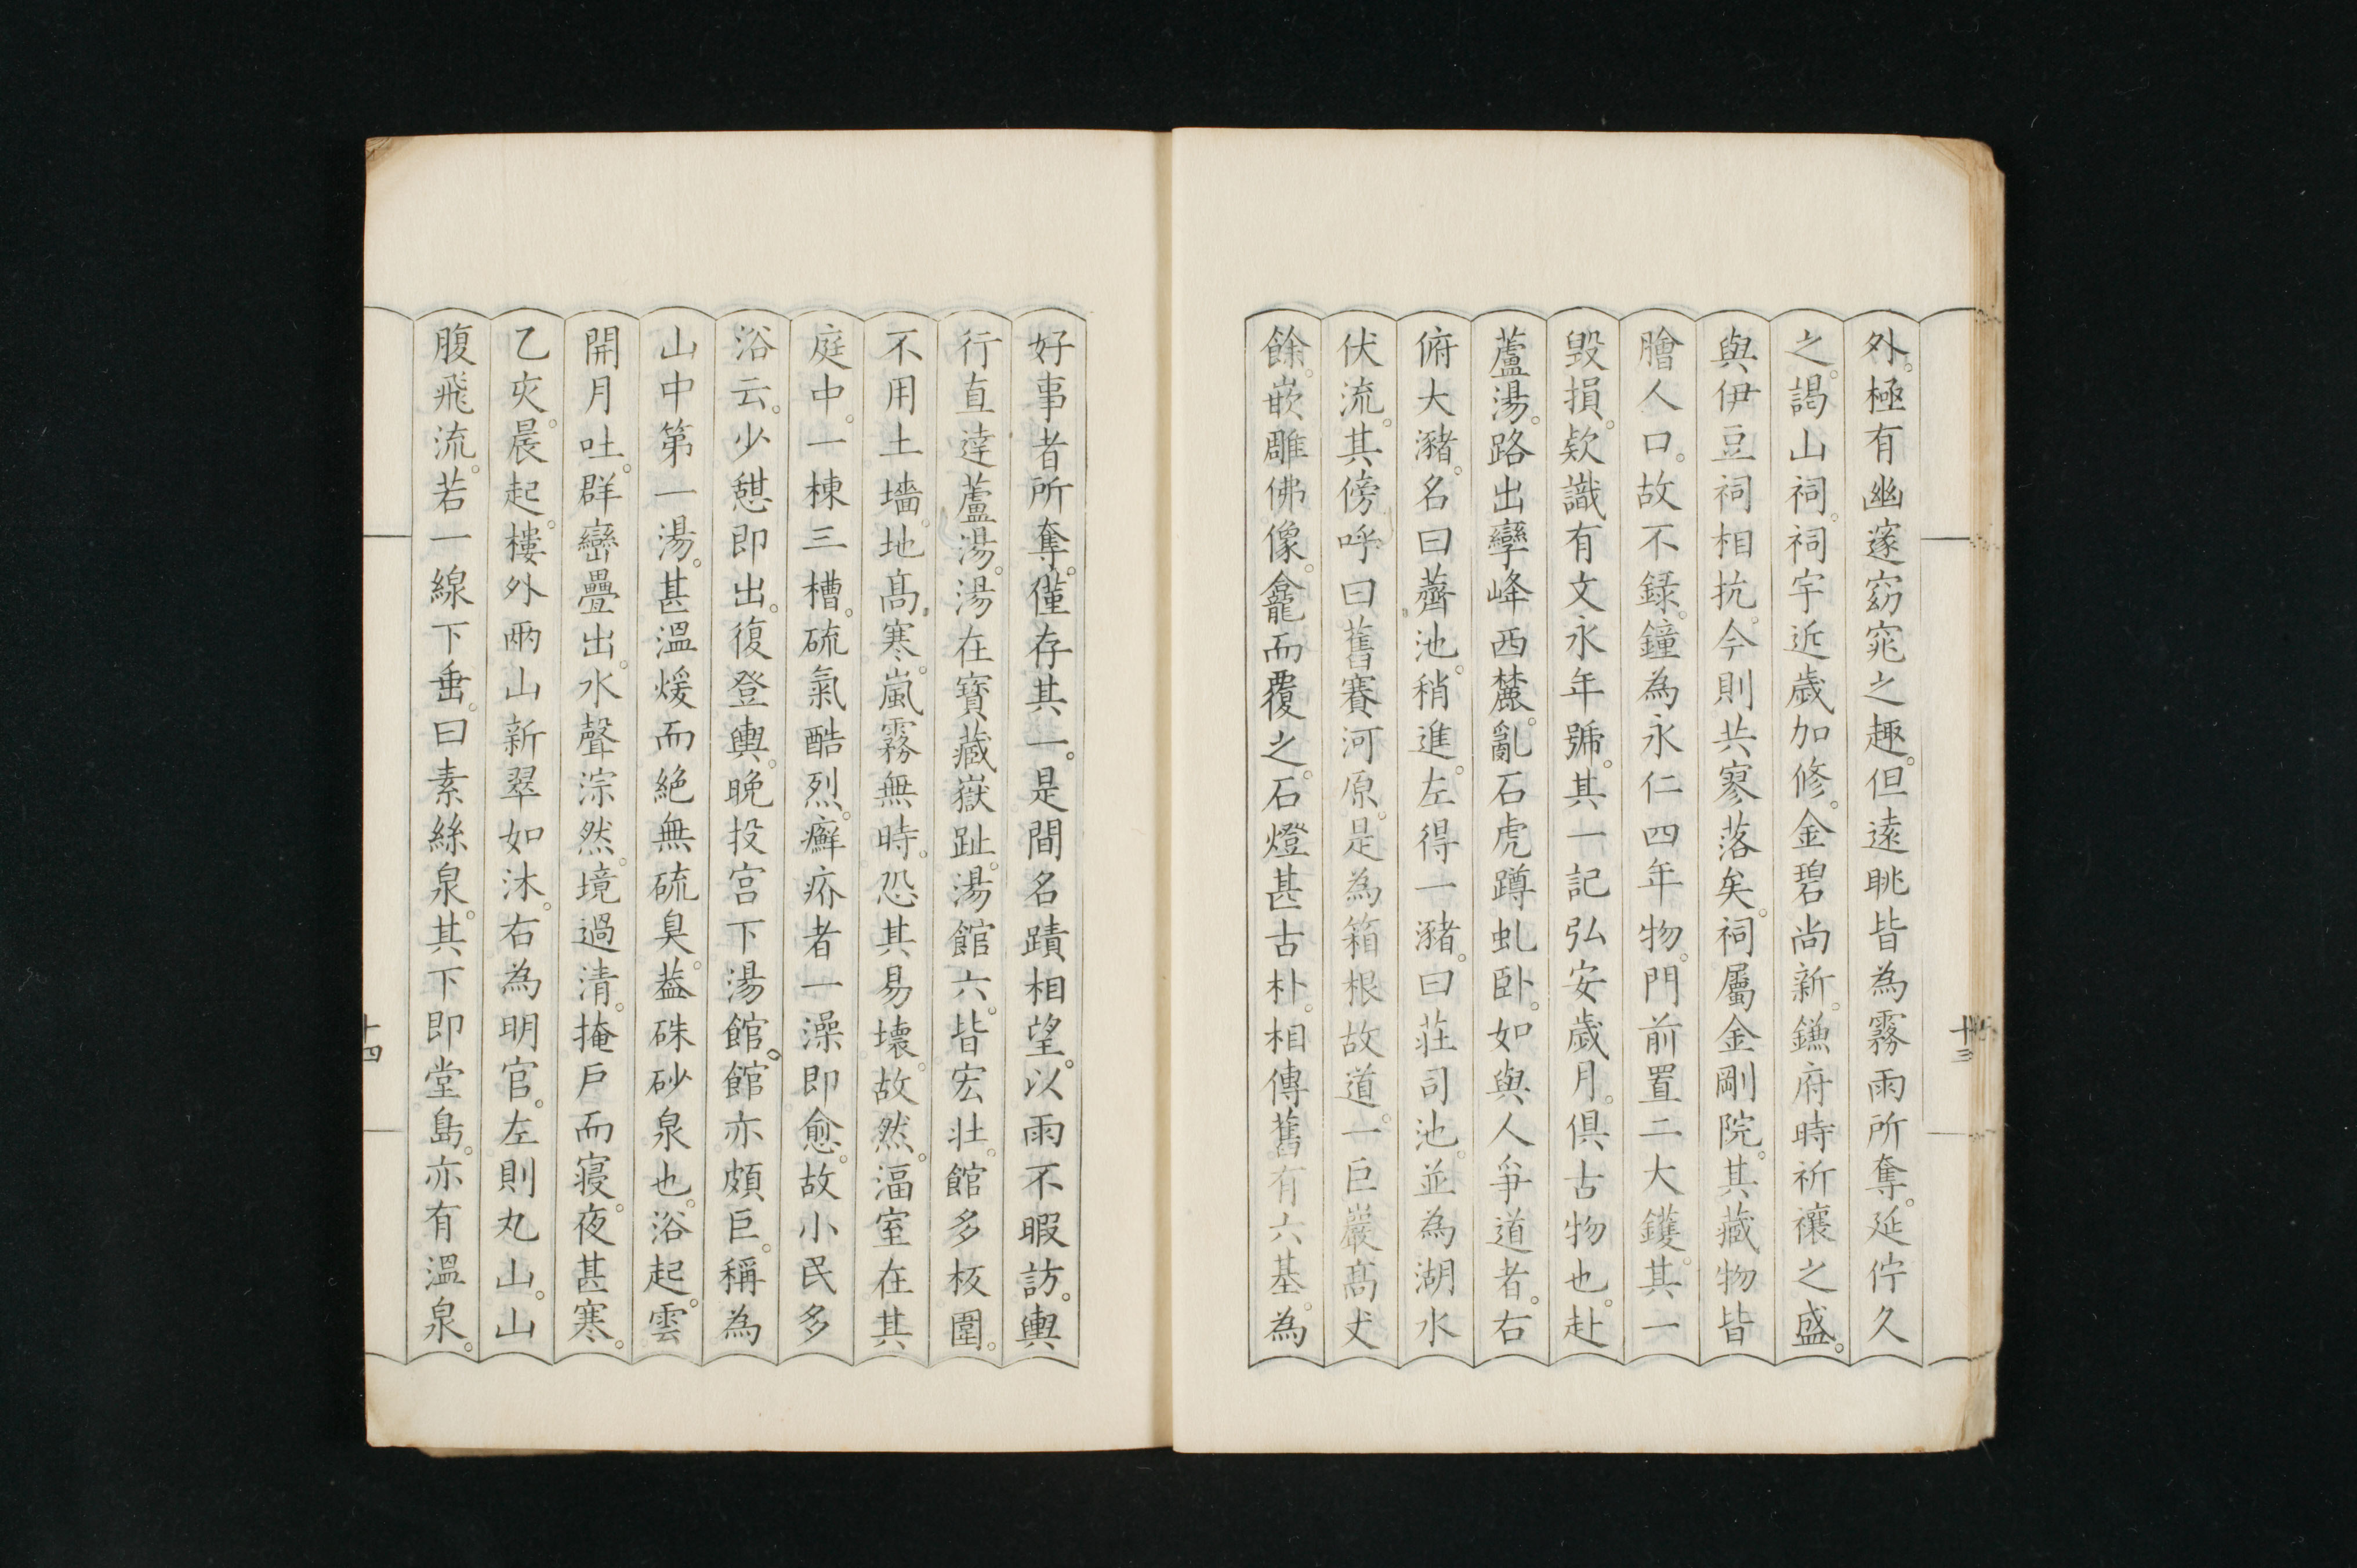 外。極有幽邃窈窕之趣。但遠眺皆為霧雨所奪。延佇久
之。謁山祠。祠宇近歲加修。金碧尚新。鎌府時祈禳之盛。
與伊豆祠相抗。今則共寥落矣。祠屬金剛院。其藏物皆
膾人口。故不錄。鐘為永仁四年物。門前置二大鑊。其一
毀損。欵識有文永年號。其一記弘安歲月。俱古物也。赴
蘆湯。路出孿峰西麓。亂石虎蹲虬卧。如與人爭道者。右
俯大瀦。名曰薺池。稍進。左得一瀦。曰荘司池。並為湖水
伏流。其傍呼曰舊賽河原。是為箱根故道。一巨巖高丈
餘。嵌雕佛像。龕而覆之。石燈甚古朴。相傳舊有六基。為
十三
好事者所奪。僅存其一。是間名蹟相望。以雨不暇訪。輿
行直達蘆湯。湯在寶藏嶽趾。湯館六。皆宏壯。館多板圍。
不用土墻。地高寒。嵐霧無時。恐其易壞。故然。湢室在其
庭中。一棟三槽。硫氣酷烈。癬疥者一澡即愈。故小民多
浴云。少憩即出。復登輿。晚投宮下湯館。館亦頗巨。稱為
山中第一湯。甚溫煖而絕無硫臭。葢硃砂泉也。浴起。雲
開月吐。群巒疊出。水聲淙然。境過清。掩戶而寢。夜甚寒。
乙夾。晨起。樓外兩山新翠如沐。右為明官。左則丸山。山
腹飛流。若一線下垂。曰素絲泉。其下即堂島。亦有溫泉。
十四